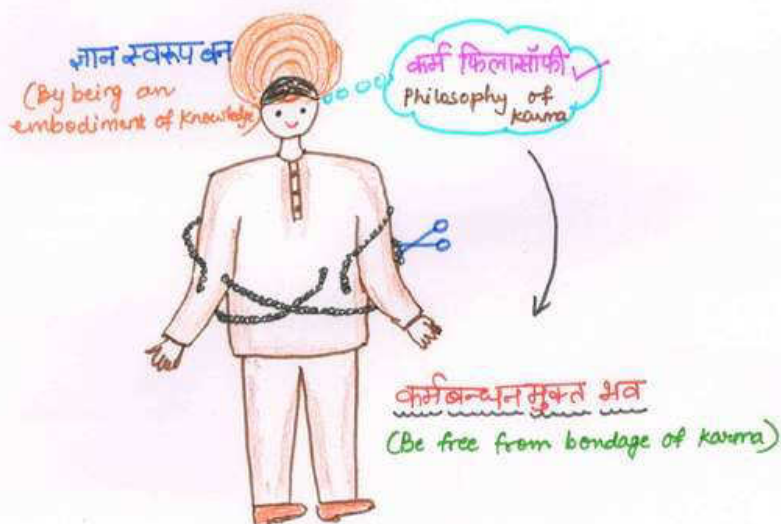 ज्ञान स्वरूप बन
(By being an
embodiment of knowledge)
कर्म फिलासॉफी
Philosophy of
karma
कर्मबन्धनमुक्त भव
(Be free from bondage of karma)